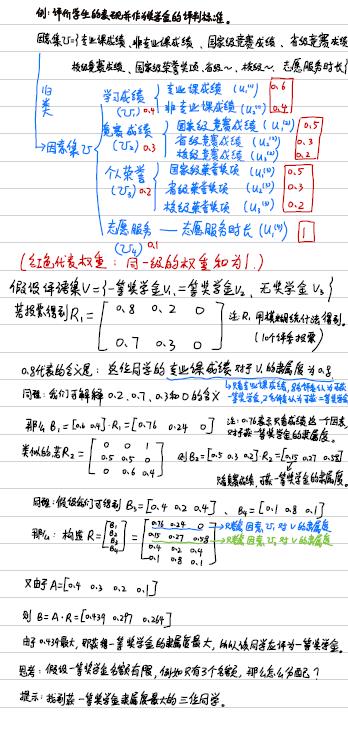 例：评价学生的表现并作为奖学金的评判标准。
因素集U={专业课成绩、非专业课成绩、国家级竞赛成绩、省级竞赛成绩
校级竞赛成绩、国家级荣誉奖项、省级~、校级~、志愿服务时长}
归类 →因素集U
学习成绩 (U₁) 0.4 { 专业课成绩 (u₁⁽¹⁾) 0.6
非专业课成绩 (u₂⁽¹⁾) 0.4
竞赛成绩 (U₂) 0.3 { 国家级竞赛成绩 (u₁⁽²⁾) 0.5
省级竞赛成绩 (u₂⁽²⁾) 0.3
校级竞赛成绩 (u₃⁽²⁾) 0.2
个人荣誉 (U₃) 0.2 { 国家级荣誉奖项 (u₁⁽³⁾) 0.5
省级荣誉奖项 (u₂⁽³⁾) 0.3
校级荣誉奖项 (u₃⁽³⁾) 0.2
志愿服务 (U₄) 0.1 — 志愿服务时长 (u₁⁽⁴⁾) 1
(红色代表权重：同一级的权重和为1.)
假设评语集V={一等奖学金v₁, 二等奖学金v₂, 无奖学金v₃}
若投票得到R₁=[0.8 0.2 0
0.7 0.3 0]
注：R₁用模糊统计法得到。
(10个评委投票)
0.8代表的含义是：这位同学的专业课成绩对于v₁的隶属度为0.8
同理：我们可解释0.2、0.7、0.3和0的含义
那么B₁=[0.6 0.4]·R₁=[0.76 0.24 0]
注：0.76表示只看成绩这一个因素,
对于获一等奖学金的隶属度。
类似的若R₂=[0 0 1
0.5 0.5 0
0 0.6 0.4]
则B₂=[0.5 0.3 0.2]·R₂=[0.15 0.27 0.58]
同理：假设我们可得到B₃=[0.4 0.2 0.4]、B₄=[0.1 0.8 0.1]
那么：构造R=[B₁ B₂ B₃ B₄]=[0.76 0.24 0
0.15 0.27 0.58
0.4 0.2 0.4
0.1 0.8 0.1]
→只考虑因素U₁对V的隶属度
→只考虑因素U₂对V的隶属度
又由于A=[0.4 0.3 0.2 0.1]
则B=A·R=[0.439 0.297 0.264]
由于0.439最大，即获得一等奖学金的隶属度最大，所以该同学应评为一等奖学金。
思考：假设一等奖学金名额有限，例如只有3个名额，那么怎么分配？
提示：找到获一等奖学金隶属度最大的三位同学。